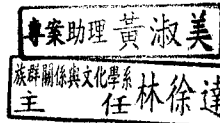 專案助理黃淑美
族群關係與文化學系
主任林徐達